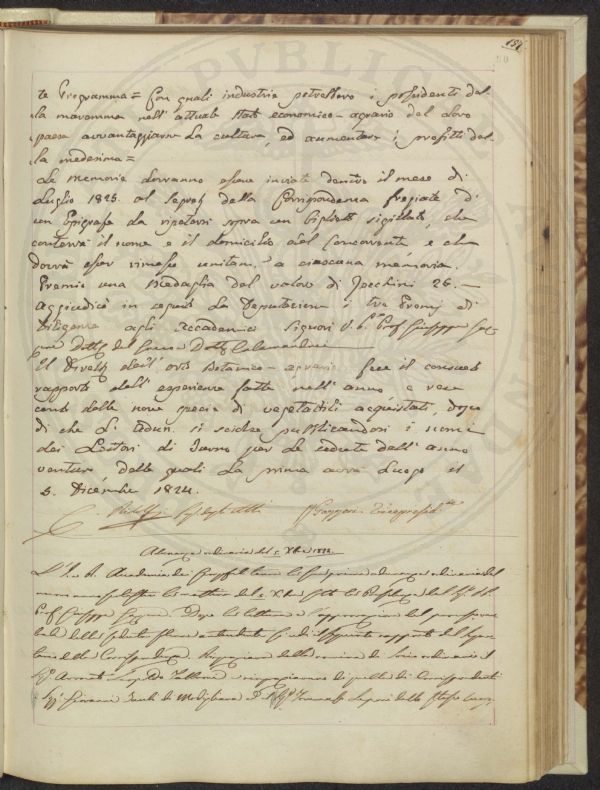 152
te Programma = Con quali industrie potrebbero i possidenti del
la maremma nell' attuale stato economico-agrario del loro
paese avvantaggiare la cultura, ed aumentare i profitti del
la medesima =
Le memorie dovranno essere inviate dentro il mese di
Luglio 1825. al Segret della Corrispondenza fregiate d'
un Epigrafe da ripetersi sopra un biglietto sigillato, che
conterrà il nome e il domicilio del Concorrente e che
dovrà esser rimesso unitam. a ciascuna memoria.
Premio una Medaglia del valore di Zecchini 25. —
Aggiudicò in seguito la Deputazione i tre Premj di
diligenza agli Accademici Signori Prof Giuseppe
Dott Calamandrei
Il Dirett dell' orto Botanico-agrario fece il consueto
rapporto dell' esperienze fatte nell' anno e rese
conto delle nove specie di vegetabili acquistati, dopo
di che l' adun. si sciolse pubblicandosi i nomi
dei Lettori di Turno per le sedute dell' anno
venturo delle quali la prima avrà luogo il
5. Dicembre 1824.
Ridolfi Seg degli Atti
Adunanza ordinaria del 5 Xbre
L' I. e R. Accademia dei Georgofili tenne la sua prima adunanza ordinaria del
Prof Giuseppe Dopo la lettura e l'approvazione del processo ver
bale della seduta rapporto del Segre
tario delle Corrispondenze
Leopoldo Corrispondenti
Giovanni di Modigliana Francesco dello stesso luogo